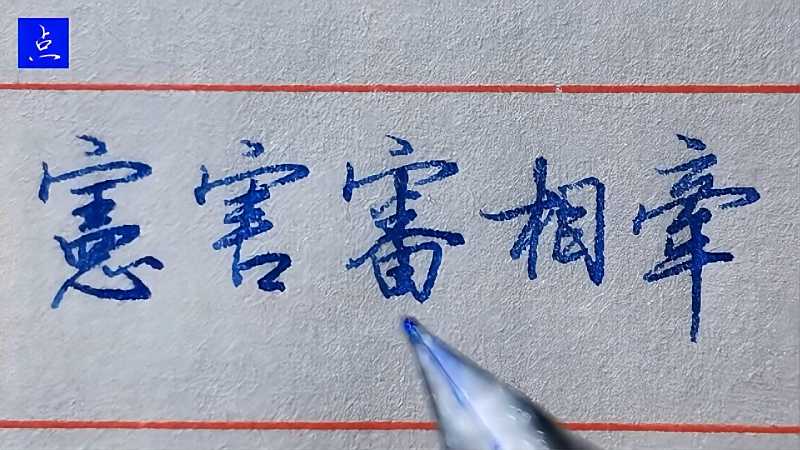 点
憲害審相牽